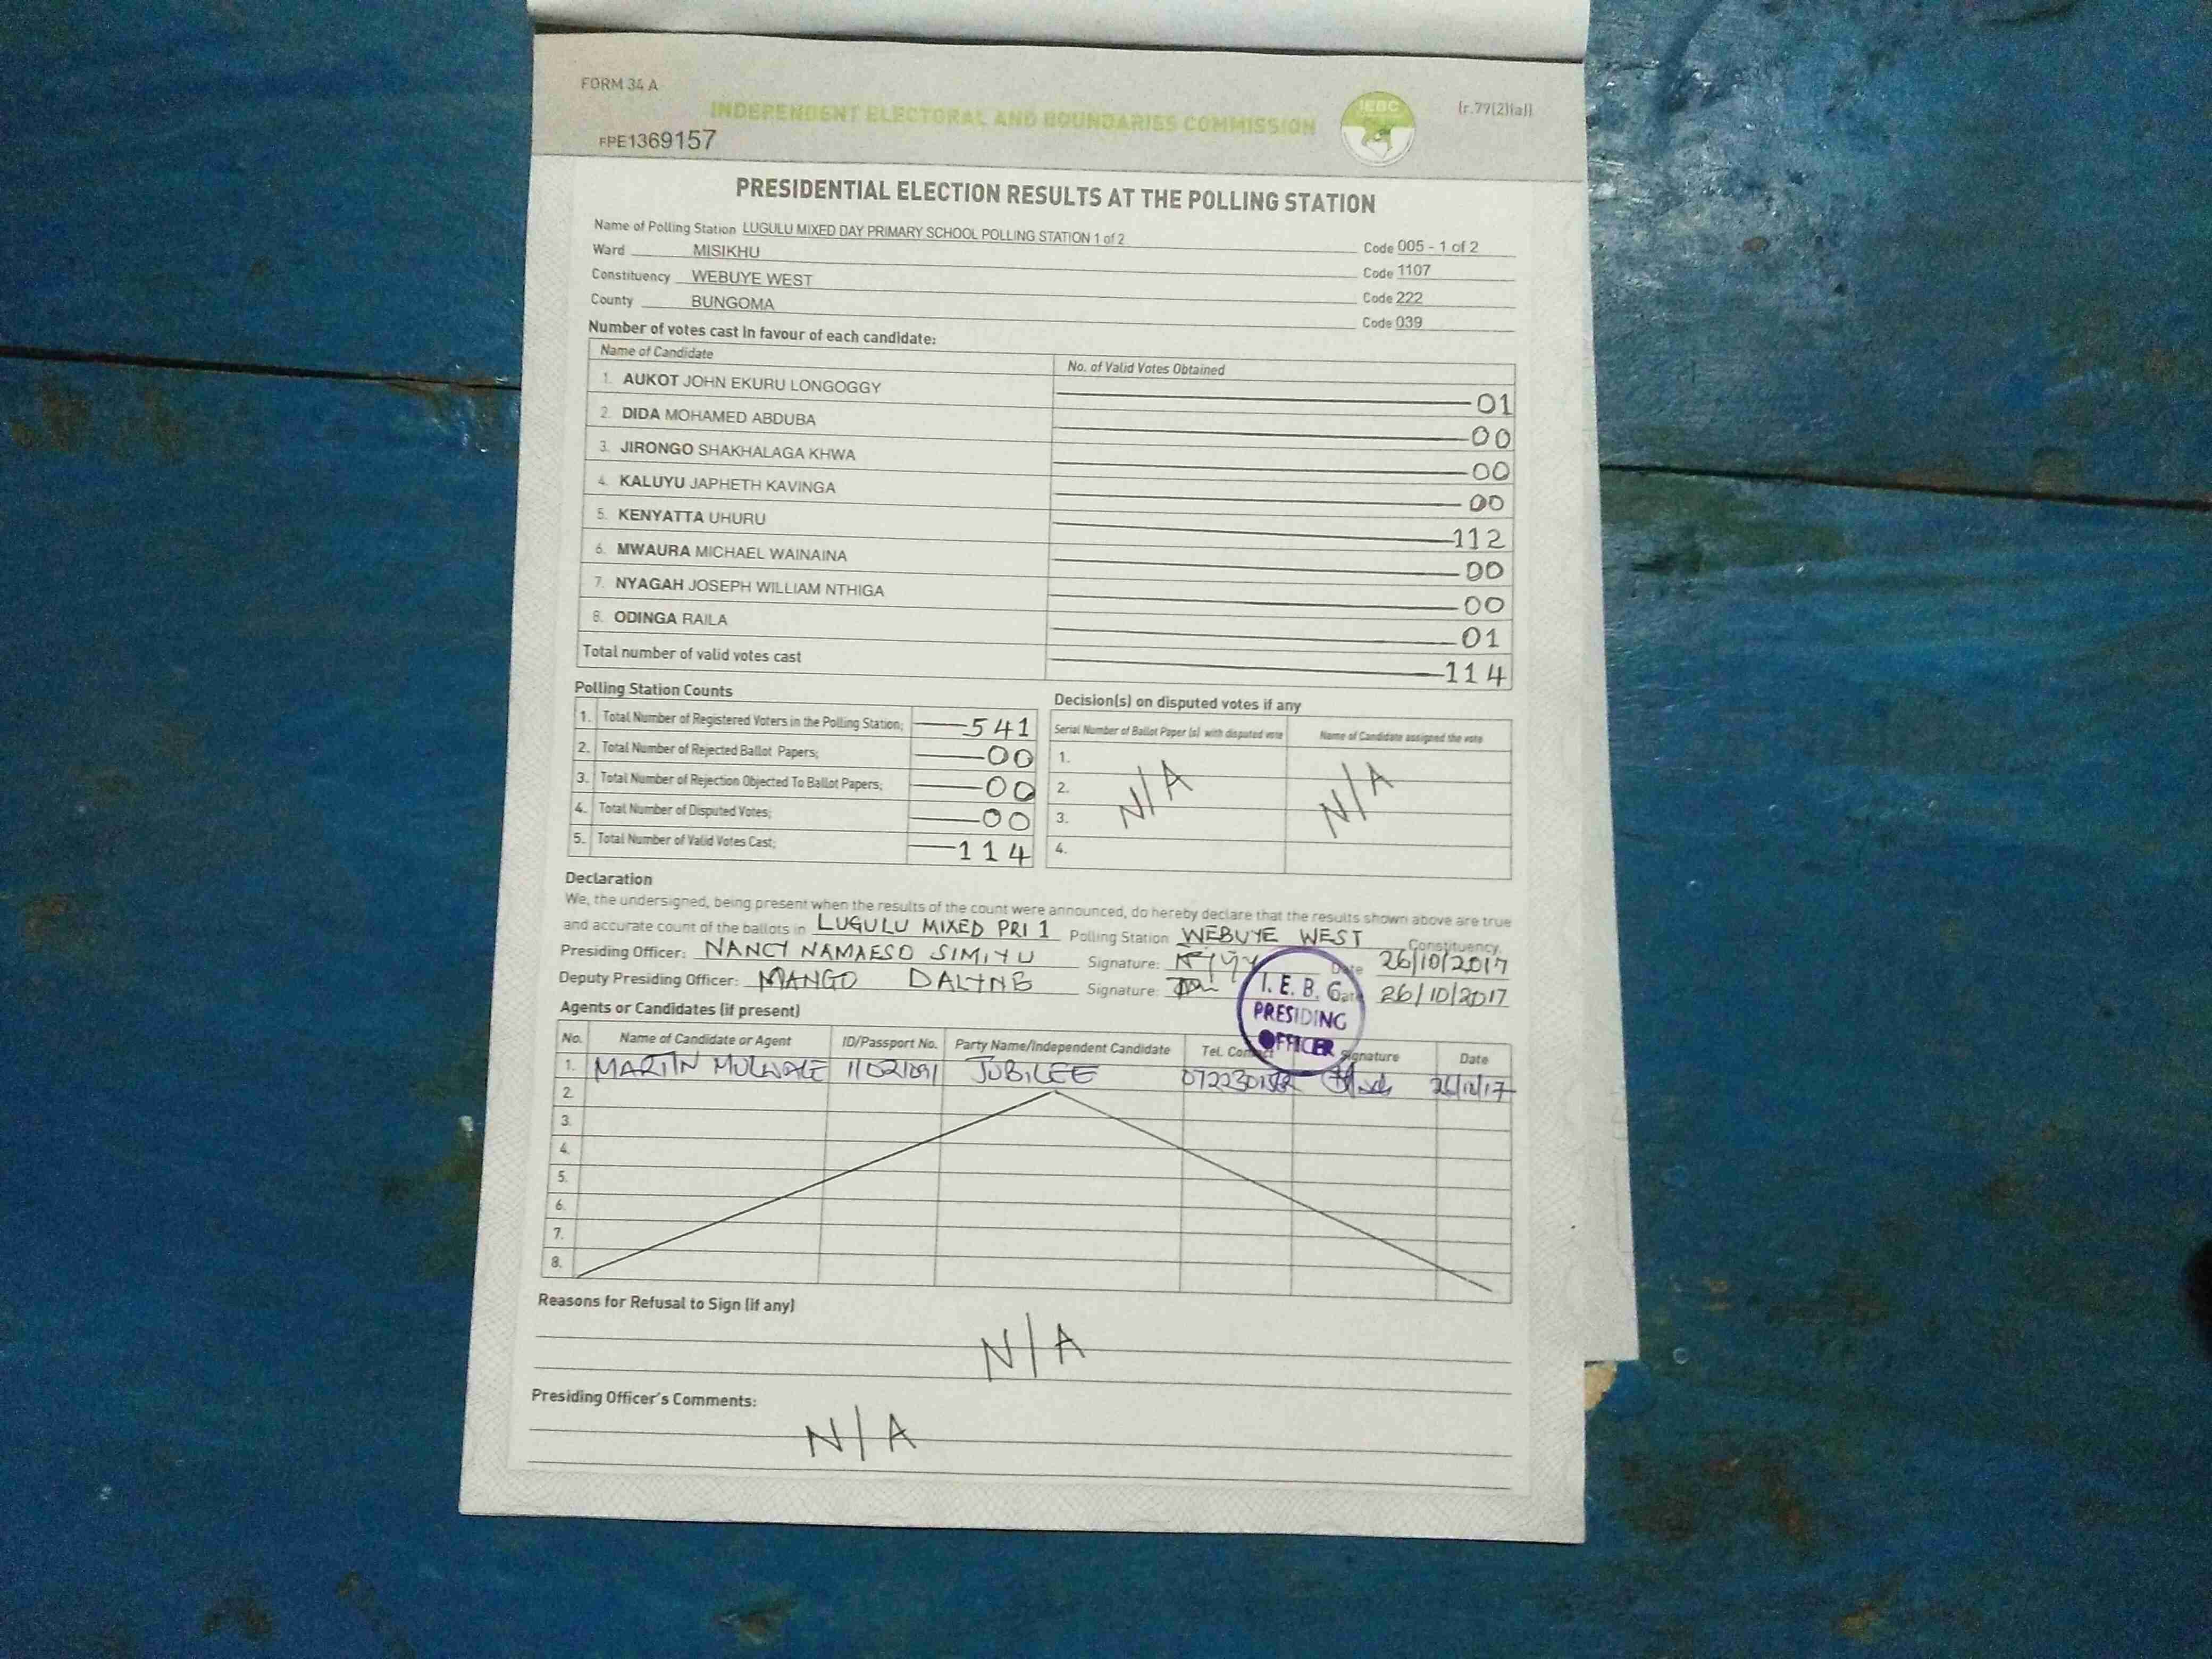 FORM 34 A
INDEPENDENT ELECTORAL AND BOUNDARIES COMMISSION
IEBC
(r.77(2)(a))
FPE1369157
PRESIDENTIAL ELECTION RESULTS AT THE POLLING STATION
Name of Polling Station LUGULU MIXED DAY PRIMARY SCHOOL POLLING STATION 1 of 2 Code 005 - 1 of 2
Ward MISIKHU Code 1107
Constituency WEBUYE WEST Code 222
County BUNGOMA Code 039
Number of votes cast in favour of each candidate:
Name of Candidate No. of Valid Votes Obtained
1. AUKOT JOHN EKURU LONGOGGY 01
2. DIDA MOHAMED ABDUBA 00
3. JIRONGO SHAKHALAGA KHWA 00
4. KALUYU JAPHETH KAVINGA 00
5. KENYATTA UHURU 112
6. MWAURA MICHAEL WAINAINA 00
7. NYAGAH JOSEPH WILLIAM NTHIGA 00
8. ODINGA RAILA 01
Total number of valid votes cast 114
Polling Station Counts
1. Total Number of Registered Voters in the Polling Station; 541
2. Total Number of Rejected Ballot Papers; 00
3. Total Number of Rejection Objected To Ballot Papers; 00
4. Total Number of Disputed Votes; 00
5. Total Number of Valid Votes Cast; 114
Decision(s) on disputed votes if any
Serial Number of Ballot Paper (s) with disputed vote Name of Candidate assigned the vote
1.
2. N/A N/A
3.
4.
Declaration
We, the undersigned, being present when the results of the count were announced, do hereby declare that the results shown above are true
and accurate count of the ballots in LUGULU MIXED PRI 1 Polling Station WEBUYE WEST Constituency.
Presiding Officer: NANCY NAMAESO SIMIYU Signature: Date 26/10/2017
Deputy Presiding Officer: MANGO DALYNE Signature: Date 26/10/2017
I. E. B. C
PRESIDING
OFFICER
Agents or Candidates (if present)
No. Name of Candidate or Agent ID/Passport No. Party Name/Independent Candidate Tel. Contact Signature Date
1. MARTIN JUBILEE 26/10/17
2.
3.
4.
5.
6.
7.
8.
Reasons for Refusal to Sign (if any)
N/A
Presiding Officer's Comments:
N/A